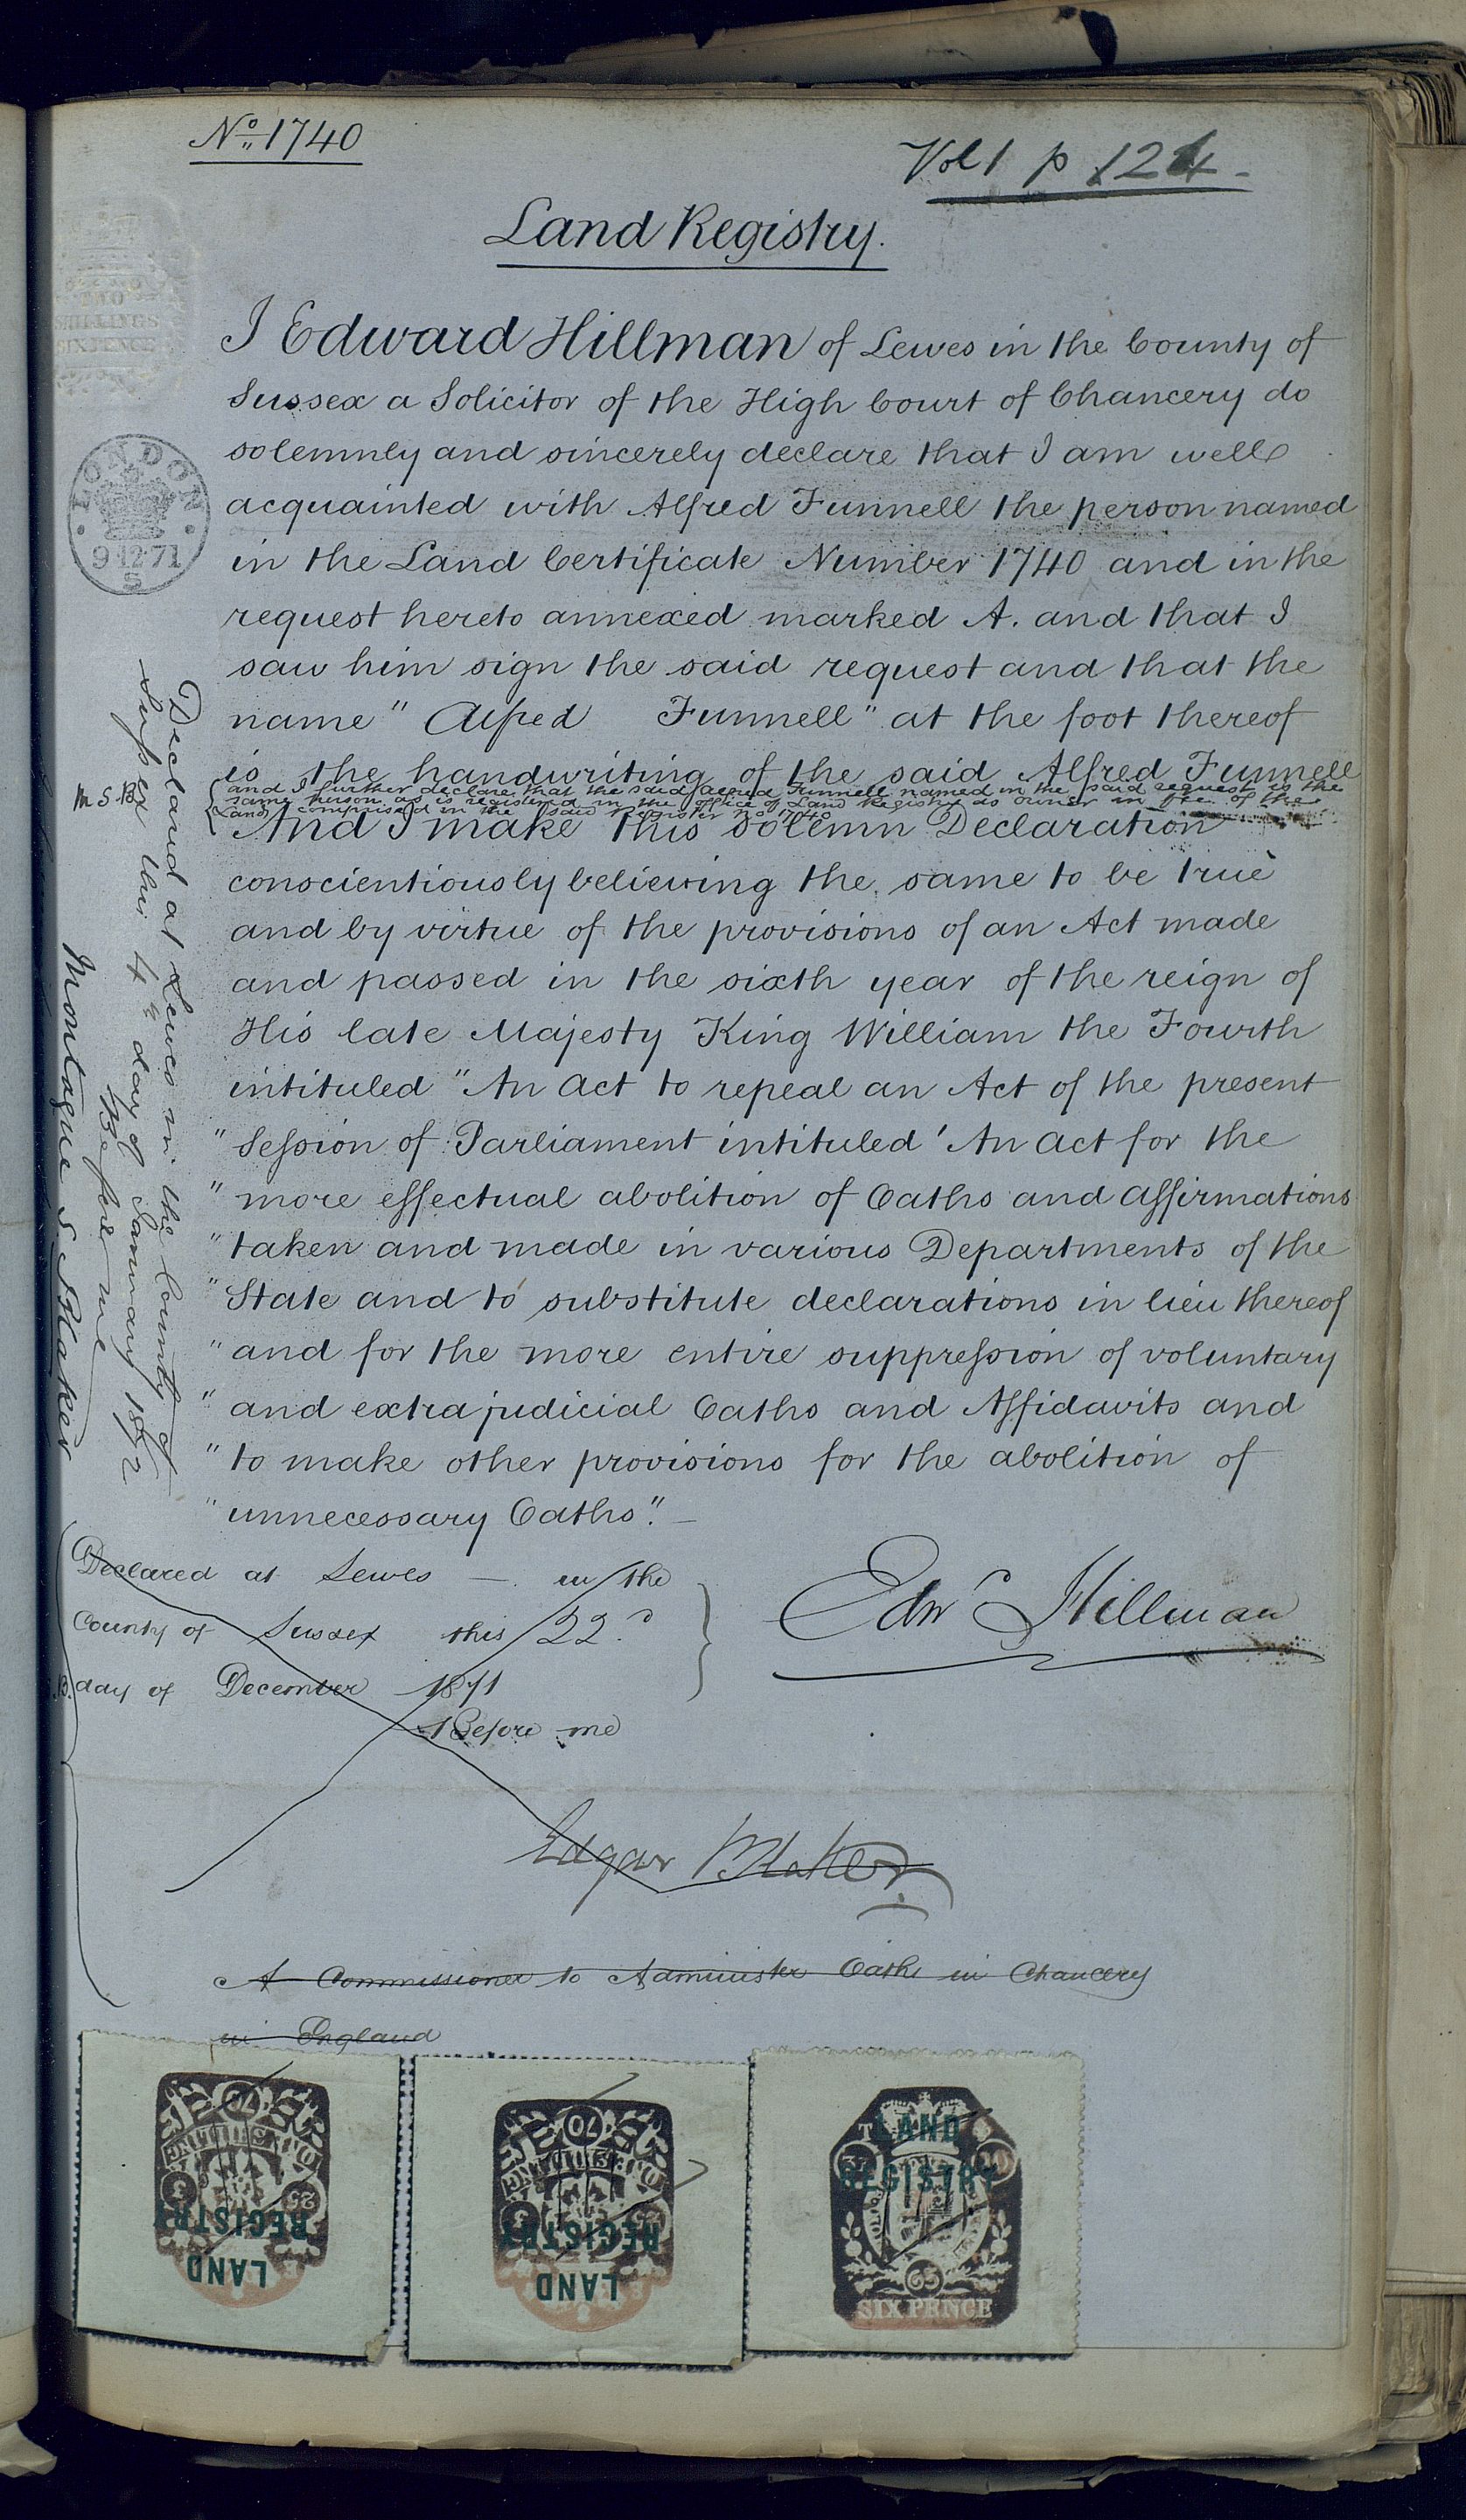 No 1740
Vol 1 p 124
Land Registry.
TWO
SHILLINGS
SIXPENCE
LONDON
9·12·71
S
I Edward Hillman of Lewes in the County of
Sussex a Solicitor of the High Court of Chancery do
solemnly and sincerely declare that I am well
acquainted with Alfred Funnell the person named
in the Land Certificate Number 1740 and in the
request hereto annexed marked A. and that I
saw him sign the said request and that the
name "Alfred Funnell" at the foot thereof
is the handwriting of the said Alfred Funnell
and I further declare that the said Alfred Funnell named in the said request is the
same person as is registered in the office of Land Registry as owner in fee of the
Land comprised in the said Register No 1740
M S B
And I make this solemn Declaration
conscientiously believing the same to be true
and by virtue of the provisions of an Act made
and passed in the sixth year of the reign of
His late Majesty King William the Fourth
intituled "An Act to repeal an Act of the present
" Session of Parliament intituled 'An Act for the
" more effectual abolition of Oaths and Affirmations
" taken and made in various Departments of the
" State and to substitute declarations in lieu thereof
" and for the more entire suppression of voluntary
" and extrajudicial Oaths and Affidavits and
" to make other provisions for the abolition of
" unnecessary Oaths".
Declared at Lewes in the County of
Sussex this 4th day of January 1872
Before me
Montague S. Blaker
Declared at Lewes in the
County of Sussex this 22d
day of December 1871
Before me
Edwd Hillman
Edgar Blaker
A Commissioner to Administer Oaths in Chancery
in England
ONE SHILLING
LAND
REGISTRY
ONE SHILLING
LAND
REGISTRY
LAND
REGISTRY
SIX PENCE